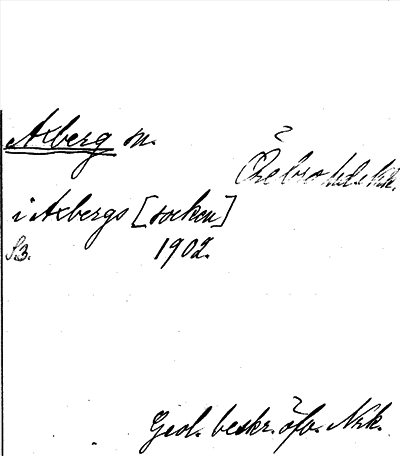 Axberg sn.
Örebro hd. Nrk.
i Axbergs [socken]
S3. 1902.
Geol. beskr. öfv. Nrk.